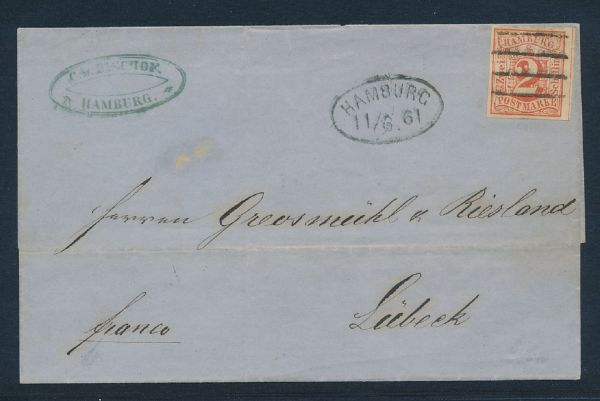 BISCHOF.
HAMBURG.
HAMBURG
11/6. 61
HAMBURG
2
POSTMARKE
Herren Grevsmühl & Riesland
franco
Lübeck